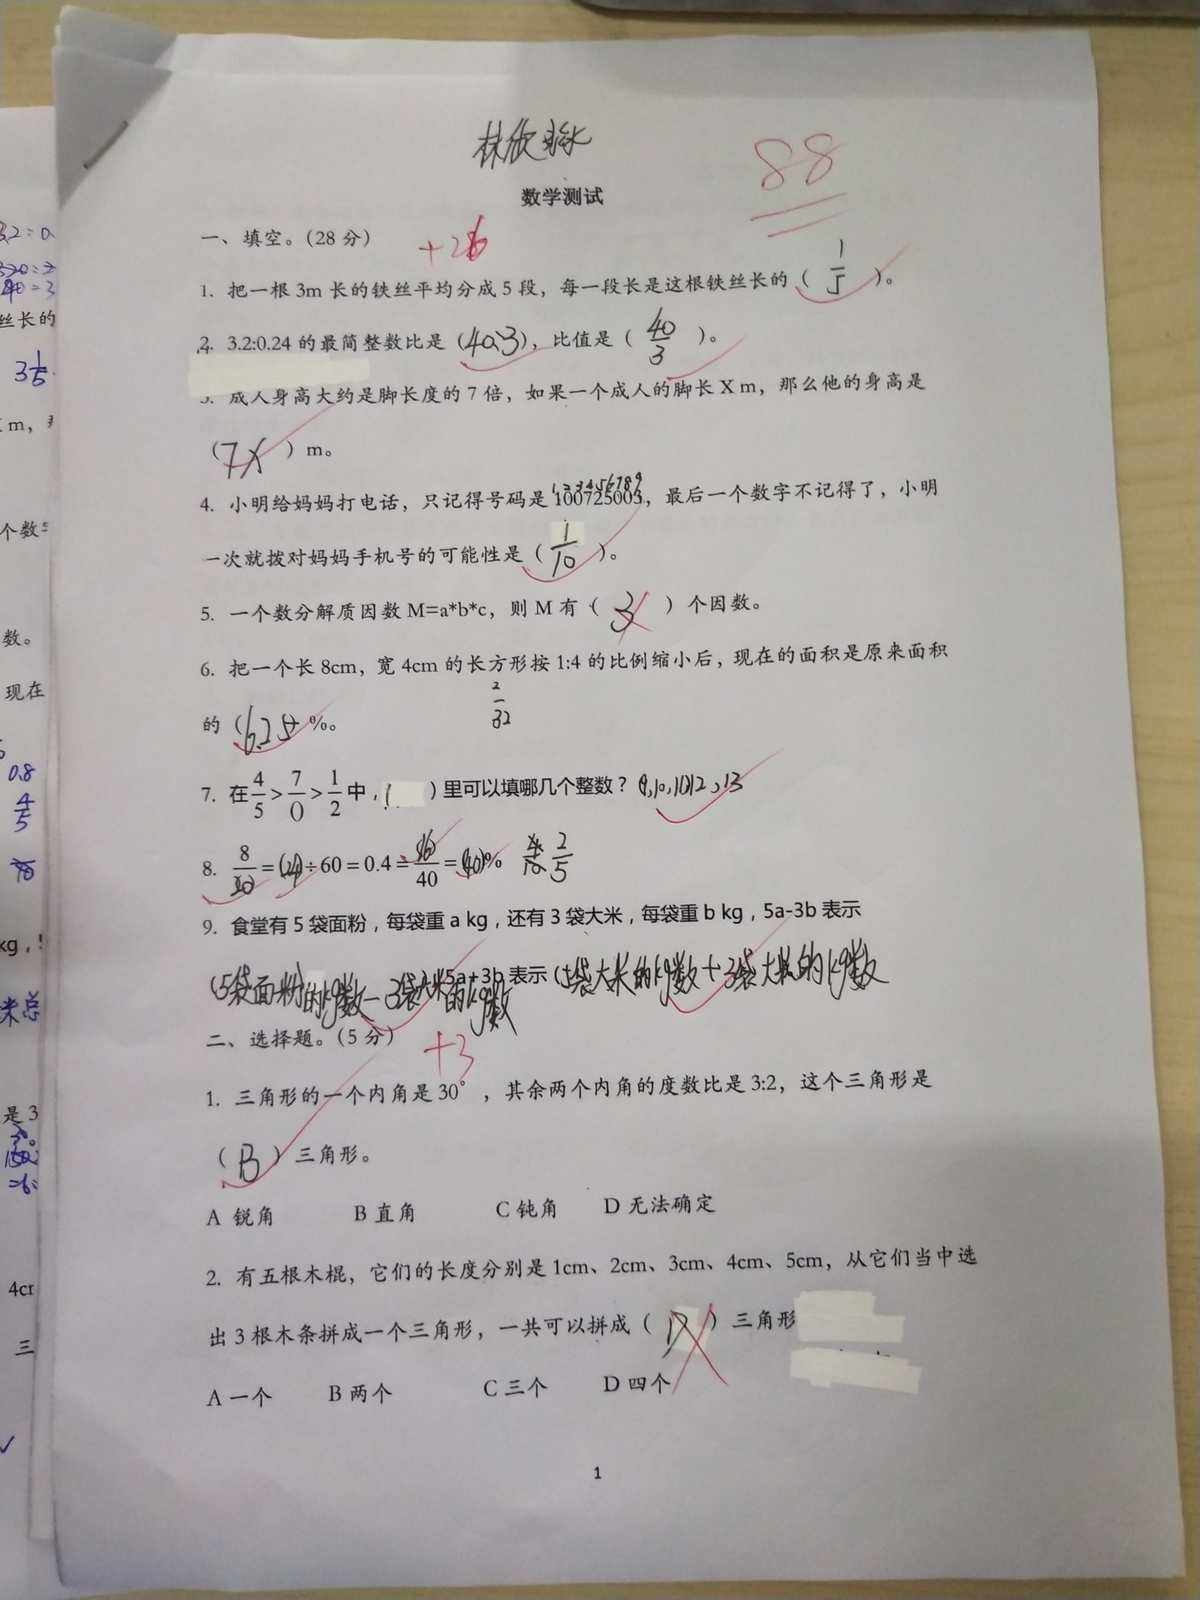 林欣
88
数学测试
一、填空。（28 分） +26
1. 把一根 3m 长的铁丝平均分成 5 段，每一段长是这根铁丝长的（ 1/5 ）。
2. 3.2:0.24 的最简整数比是（40:3），比值是（ 40/3 ）。
3. 成人身高大约是脚长度的 7 倍，如果一个成人的脚长 X m，那么他的身高是
（ 7X ）m。
123456789
4. 小明给妈妈打电话，只记得号码是 100725003，最后一个数字不记得了，小明
一次就拨对妈妈手机号的可能性是（ 1/10 ）。
5. 一个数分解质因数 M=a*b*c，则 M 有（ 3 ）个因数。
6. 把一个长 8cm，宽 4cm 的长方形按 1:4 的比例缩小后，现在的面积是原来面积
的（6.25）%。 2/32
7. 在 4/5 > 7/() > 1/2 中，（ ）里可以填哪几个整数？ 9,10,11,12,13
8. 8/(20) = (24)÷60 = 0.4 = (16)/40 = (40)% 4/10 2/5
9. 食堂有 5 袋面粉，每袋重 a kg，还有 3 袋大米，每袋重 b kg，5a-3b 表示
（5袋面粉的kg数-3袋大米的kg数 5a+3b 表示（5袋大米的kg数+3袋大米的kg数
二、选择题。（5 分） +3
1. 三角形的一个内角是 30°，其余两个内角的度数比是 3:2，这个三角形是
（ B ）三角形。
A 锐角 B 直角 C 钝角 D 无法确定
2. 有五根木棍，它们的长度分别是 1cm、2cm、3cm、4cm、5cm，从它们当中选
出 3 根木条拼成一个三角形，一共可以拼成（ D ）三角形
A 一个 B 两个 C 三个 D 四个
1